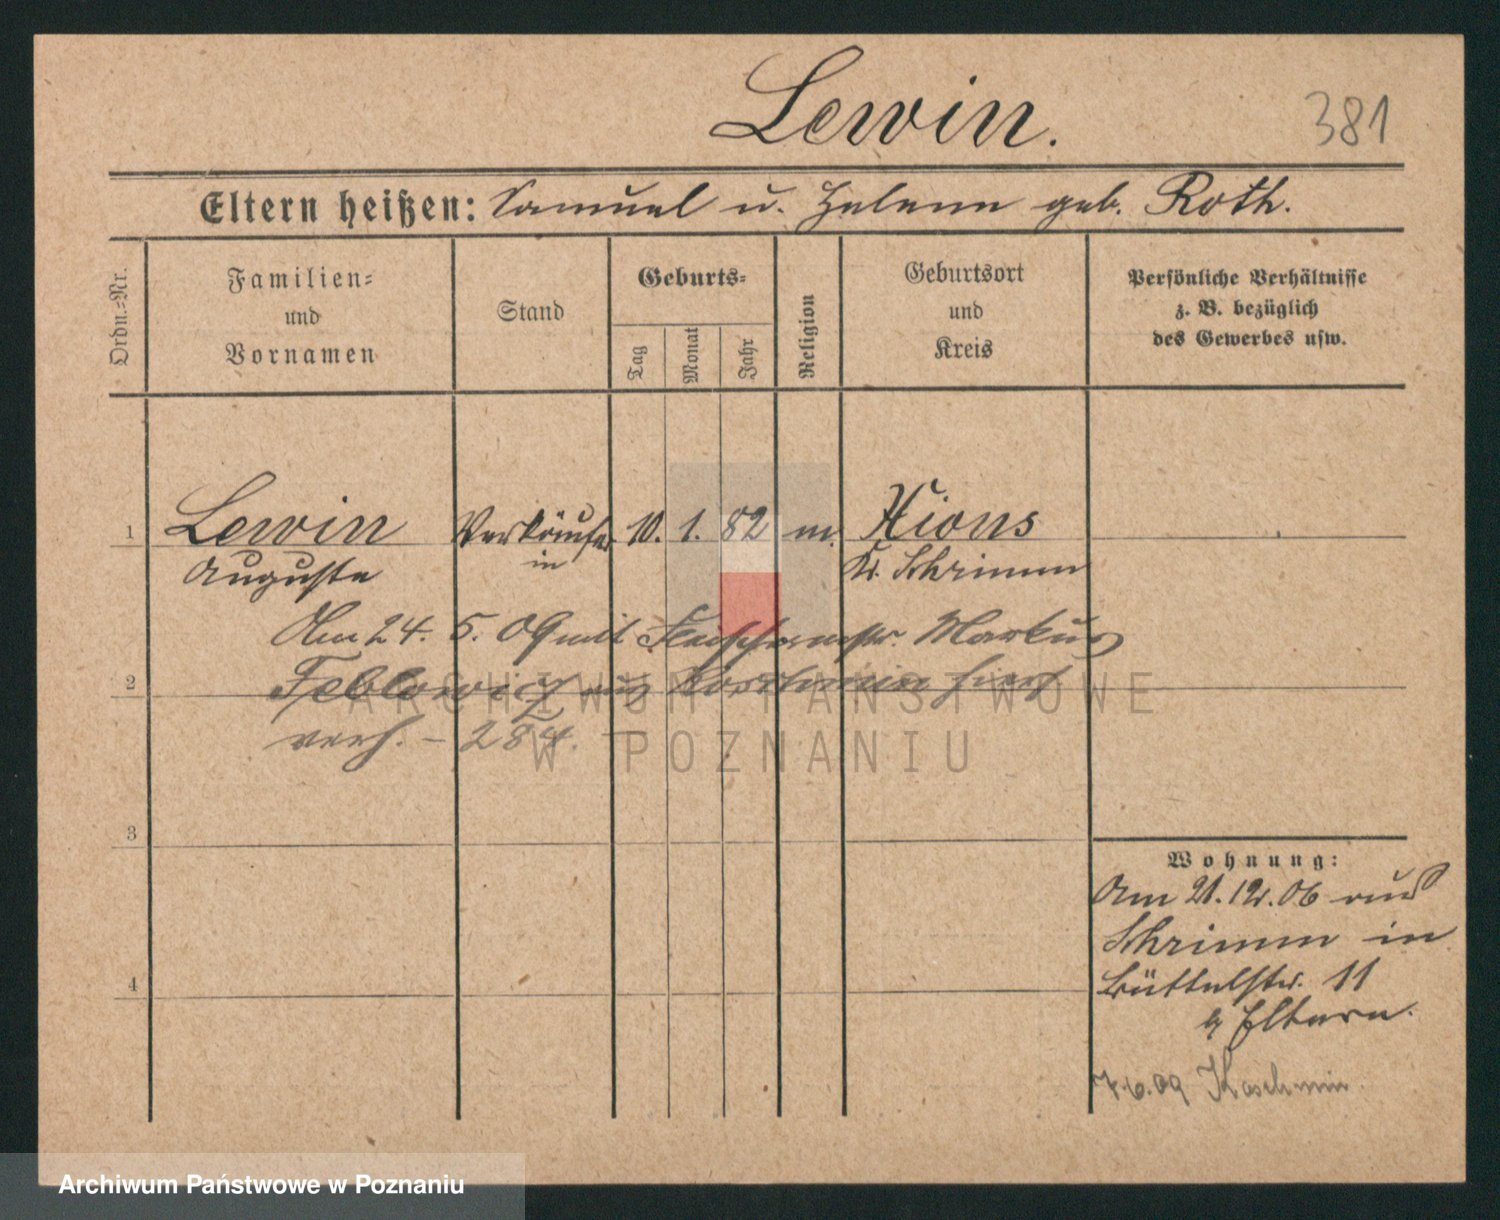 Lewin.
381
Eltern heißen: Samuel u. Helene geb. Roth.
Ordn.-Nr.
Familien-
und
Vornamen
Stand
Geburts-
Tag
Monat
Jahr
Religion
Geburtsort
und
Kreis
Persönliche Verhältnisse
z. B. bezüglich
des Gewerbes usw.
1 Lewin Verkäufer 10. 1. 82 m. Xions
Auguste in Kr. Schrimm
Am 24. 5. 09 mit Fleischermstr. Markus
2 aus Koschmin hier
verh. – 284.
ARCHIWUM PAŃSTWOWE
W POZNANIU
3
4
Wohnung:
Am 21. 12. 06 aus
Schrimm in
Büttelstr. 11
b/ Eltern.
7.6.09 Koschmin.
Archiwum Państwowe w Poznaniu